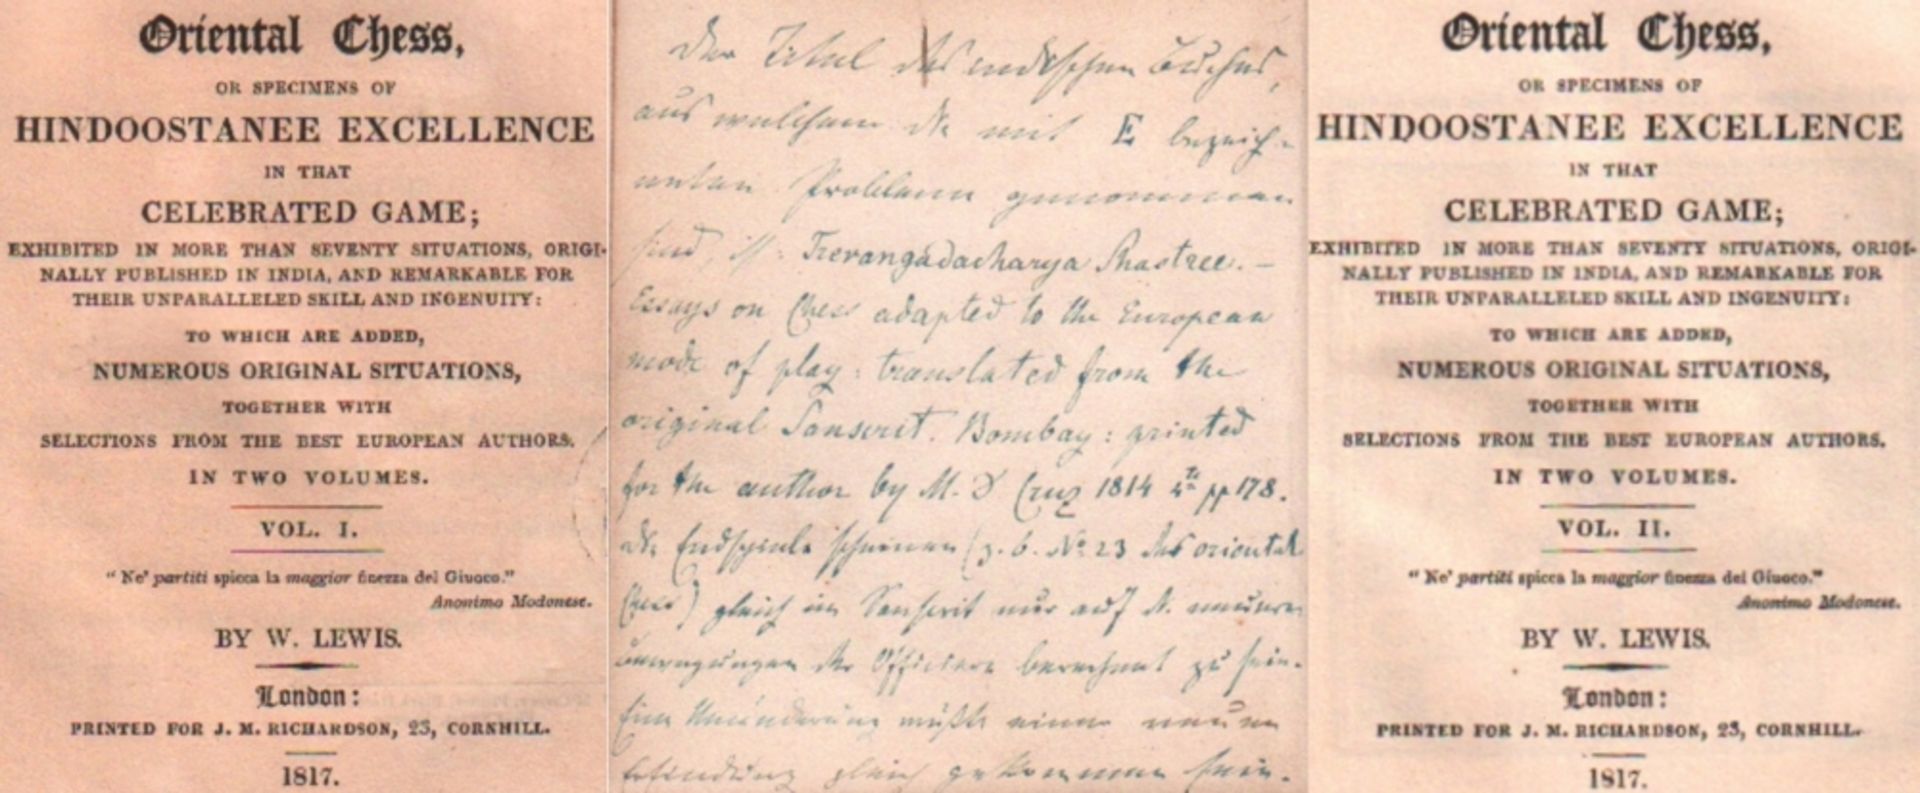 Oriental Chess,
OR SPECIMENS OF
HINDOOSTANEE EXCELLENCE
IN THAT
CELEBRATED GAME;
EXHIBITED IN MORE THAN SEVENTY SITUATIONS, ORIGI-
NALLY PUBLISHED IN INDIA, AND REMARKABLE FOR
THEIR UNPARALLELED SKILL AND INGENUITY:
TO WHICH ARE ADDED,
NUMEROUS ORIGINAL SITUATIONS,
TOGETHER WITH
SELECTIONS FROM THE BEST EUROPEAN AUTHORS.
IN TWO VOLUMES.
VOL. I.
"Ne' partiti spicca la maggior finezza del Giuoco."
Anonimo Modonese.
BY W. LEWIS.
London:
PRINTED FOR J. M. RICHARDSON, 23, CORNHILL.
1817.
Der Titel des indischen Buches,
aus welchem die mit E bezeich-
neten Probleme genommen
sind, ist: Trevangadacharya Shastree. –
Essays on Chess adapted to the European
mode of play: translated from the
original Sanscrit. Bombay: printed
for the author by M. D Cruz 1814 4to pp 178.
die Endspiele scheinen (z. b. No 23 des oriental
Chess) gleich im Sanscrit nur auf die
Bewegungen der Officiere berechnet zu sein.
Eine Umänderung müßte einer neuen
Erfindung gleich gekommen sein.
Oriental Chess,
OR SPECIMENS OF
HINDOOSTANEE EXCELLENCE
IN THAT
CELEBRATED GAME;
EXHIBITED IN MORE THAN SEVENTY SITUATIONS, ORIGI-
NALLY PUBLISHED IN INDIA, AND REMARKABLE FOR
THEIR UNPARALLELED SKILL AND INGENUITY:
TO WHICH ARE ADDED,
NUMEROUS ORIGINAL SITUATIONS,
TOGETHER WITH
SELECTIONS FROM THE BEST EUROPEAN AUTHORS.
IN TWO VOLUMES.
VOL. II.
"Ne' partiti spicca la maggior finezza del Giuoco."
Anonimo Modonese.
BY W. LEWIS.
London:
PRINTED FOR J. M. RICHARDSON, 23, CORNHILL.
1817.